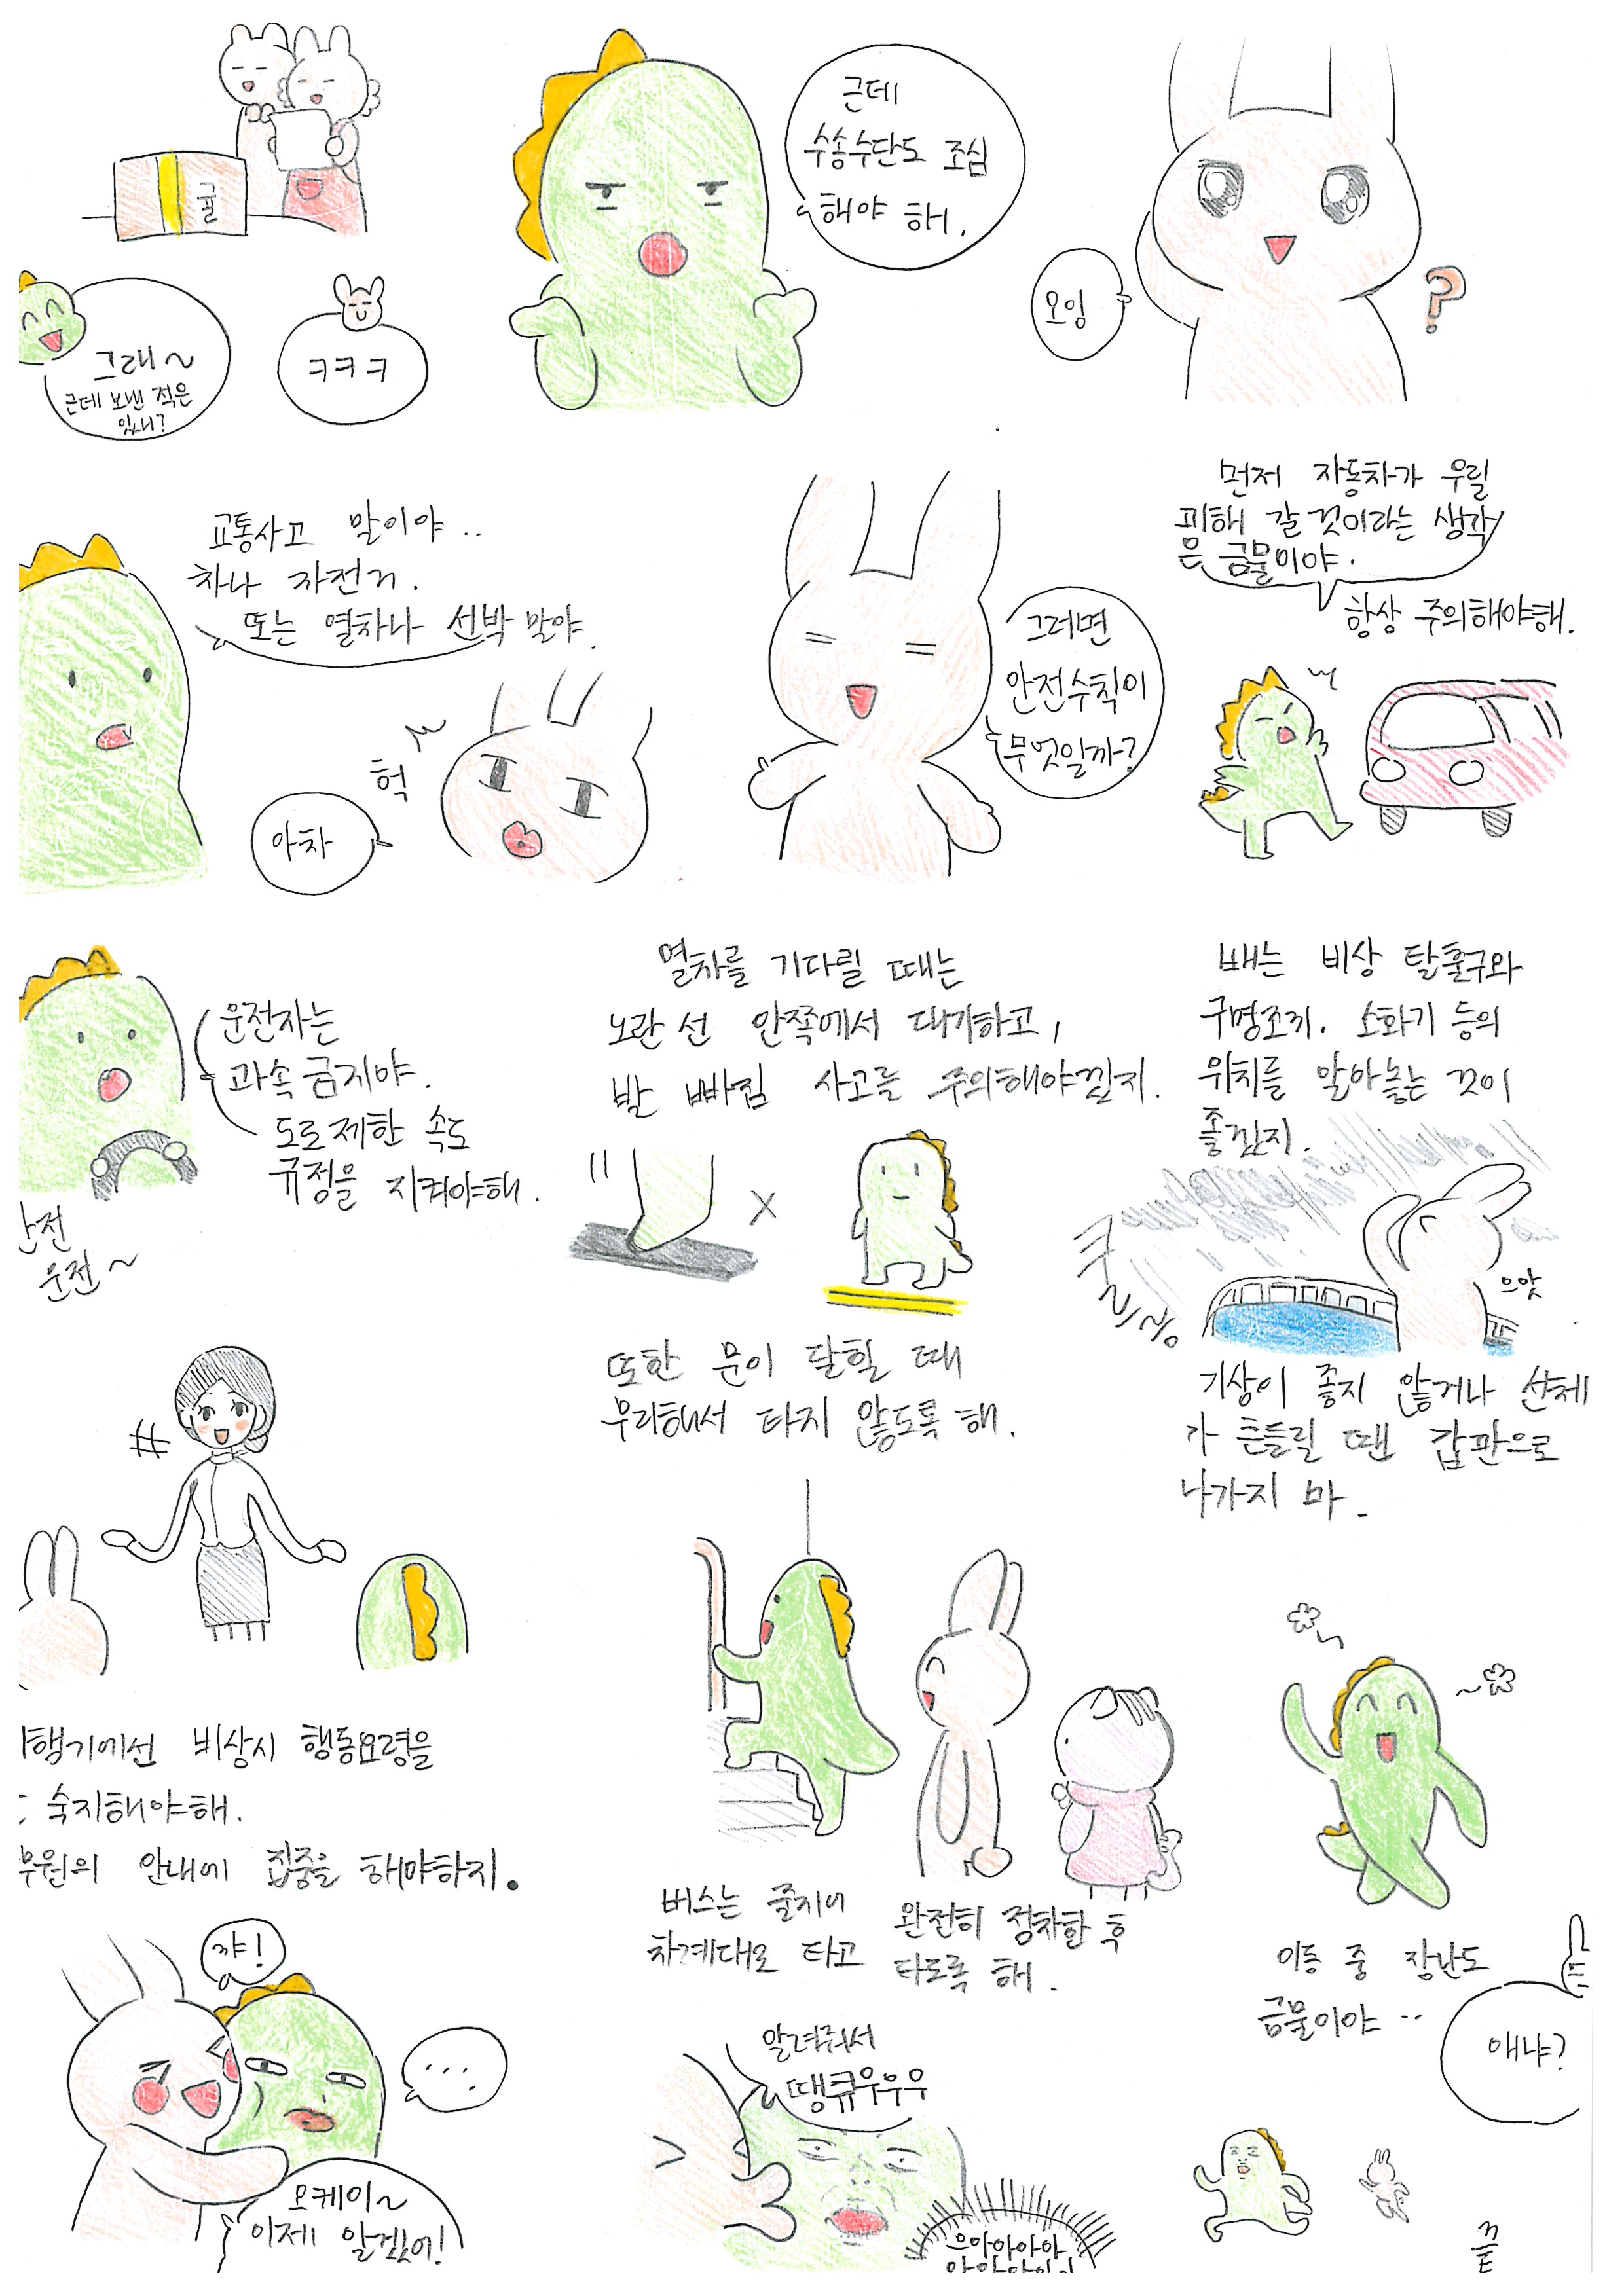 귤
그래~
근데 보낸 적은
있니?
ㅋㅋㅋ
근데
수송수단도 조심
해야 해.
오잉
?
교통사고 말이야..
차나 자전거.
또는 열차나 선박 말야.
헉
아차
그러면
안전수칙이
무엇일까?
먼저 자동차가 우릴
피해 갈 것이라는 생각
은 금물이야.
항상 주의해야해.
운전자는
과속 금지야.
도로제한 속도
규정을 지켜야해.
안전
운전~
열차를 기다릴 때는
노란 선 안쪽에서 대기하고,
발 빠짐 사고를 주의해야겠지.
X
또한 문이 닫힐 때
무리해서 타지 않도록 해.
배는 비상 탈출구와
구명조끼. 소화기 등의
위치를 알아놓는 것이
좋겠지.
쿠르릉
으앗
기상이 좋지 않거나 선체
가 흔들릴 땐 갑판으로
나가지 마.
행기에선 비상시 행동요령을
숙지해야해.
무원의 안내에 집중을 해야하지.
버스는 줄지어
차례대로 타고
완전히 정차한 후
타도록 해.
이동 중 장난도
금물이야..
꺄!
...
오케이~
이제 알겠어!
알려줘서
땡큐우우우
으아아아아
아아아아아
얘냐?
끝